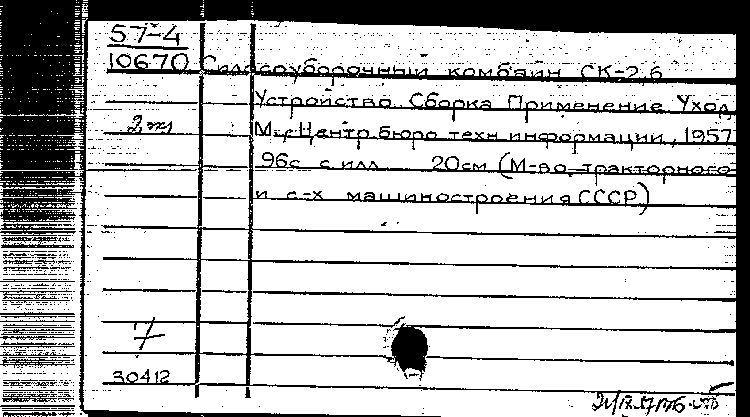 57-4
10670 Силосоуборочный комбайн СК-2,6
Устройство. Сборка. Применение. Уход.
М., Центр. бюро техн. информации, 1957
96с. с илл. 20см. (М-во тракторного
и с-х машиностроения СССР)
7
30412